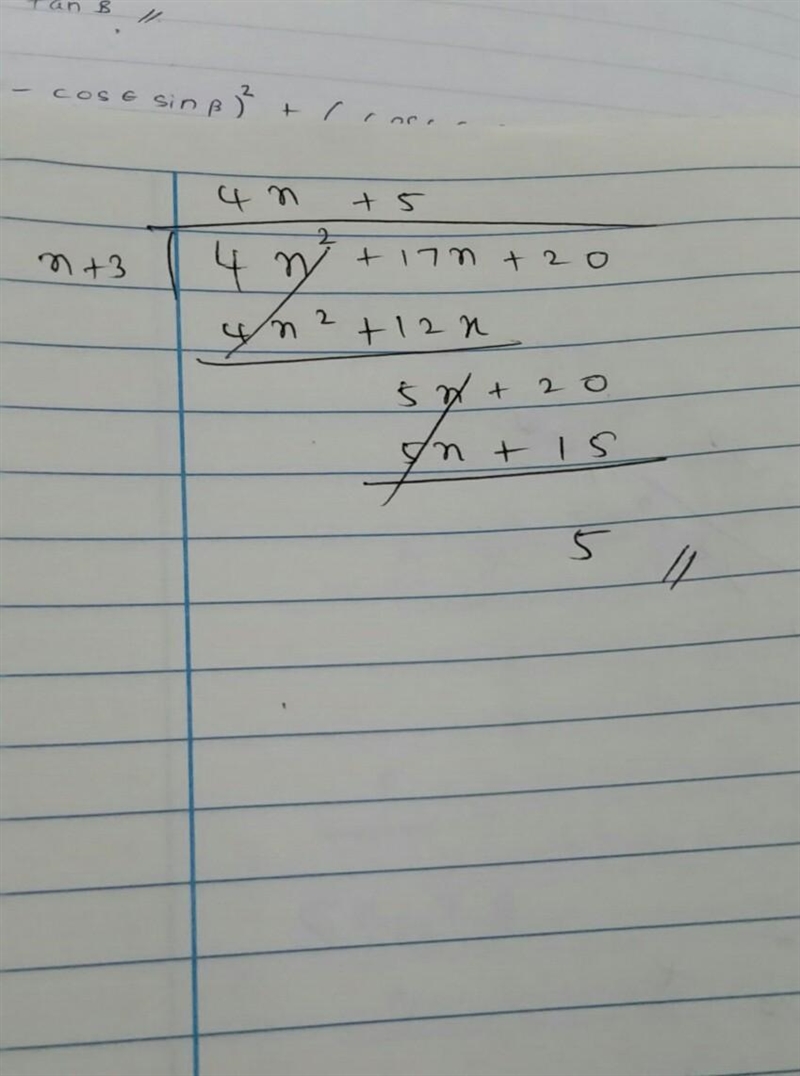 tan β. //
- cos θ sin β)² + (
4x + 5
x+3 ( 4x² + 17x + 20
4x² + 12x
5x + 20
5x + 15
5 //